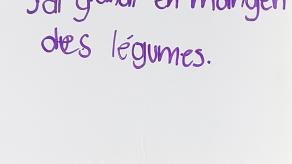 J'ai grandi en mangeant
des légumes.